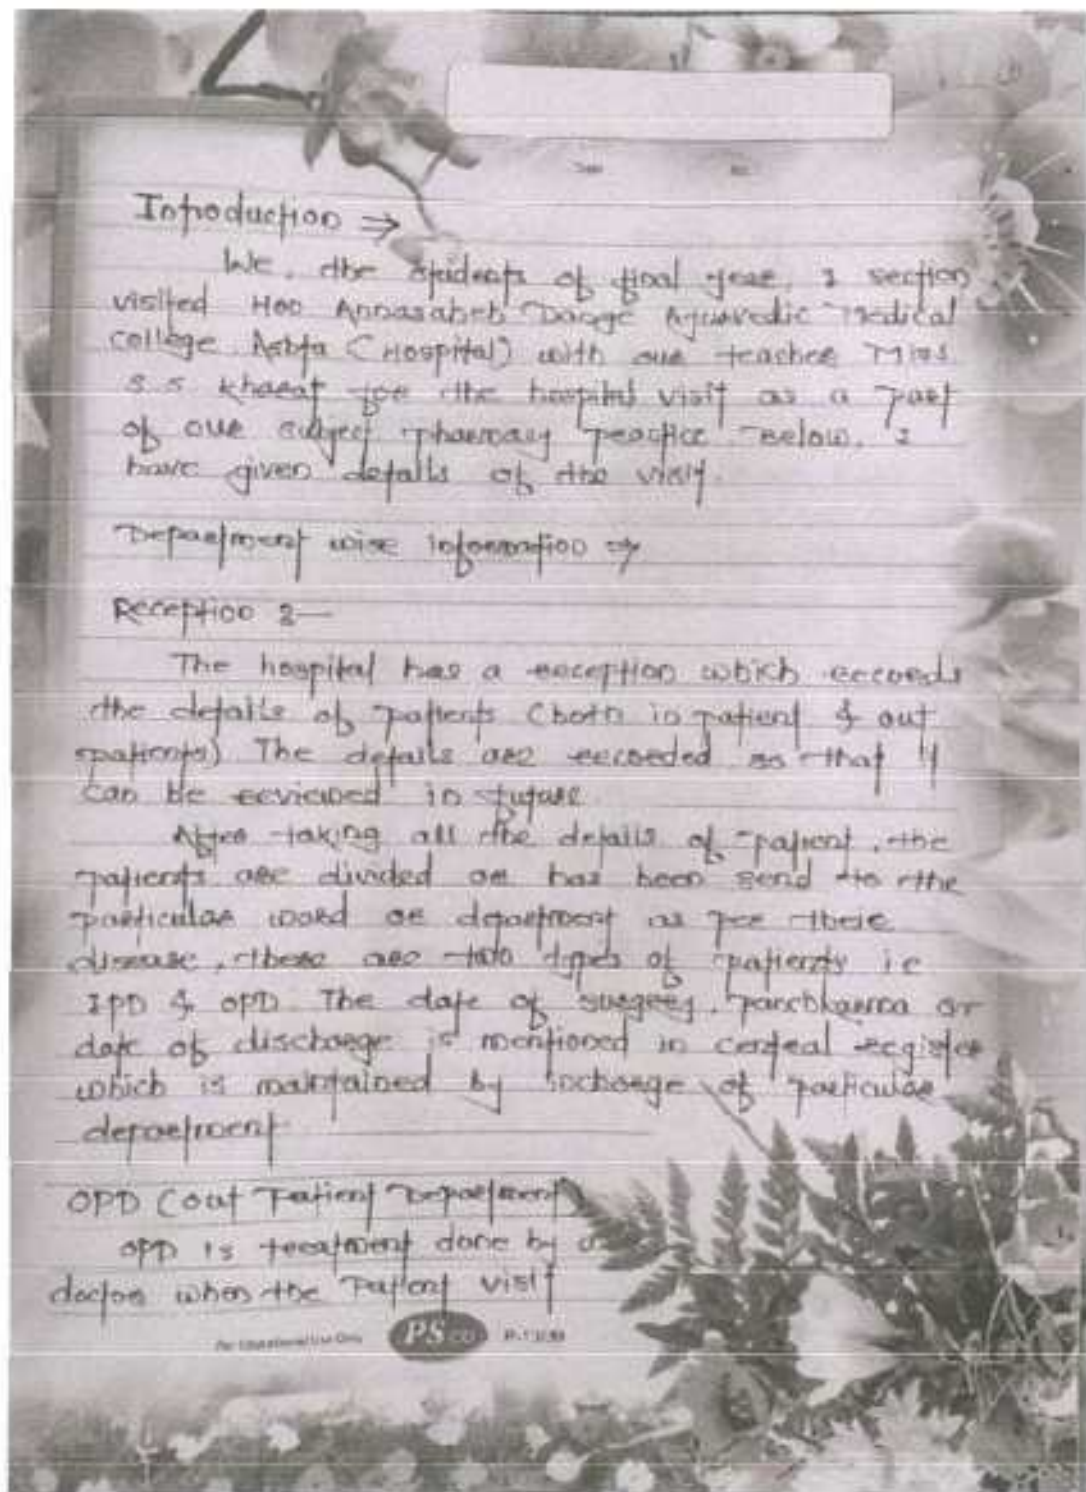 Introduction ⇒
We, the students of final year, I section
visited Hon Annasaheb Dange Ayurvedic Medical
college Ashta (Hospital) with our teacher Miss
S.S Kharat for the hospital visit as a part
of our subject pharmacy practice. Below, I
have given details of the visit.
Department wise information ⇒
Reception :-
The hospital has a reception which records
the details of patients (both in patient & out
patients) The details are recorded so that it
can be reviewed in future.
After taking all the details of patient, the
patients are divided or has been send to the
particular ward or department as per there
disease, there are two types of patients i.e
IPD & OPD. The date of surgery, Panchkarma or
date of discharge is mentioned in central register
which is maintained by incharge of particular
department
OPD (out Patient Department)
OPD is treatment done by a
doctor when the Patient visit
For Educational Use Only PS CO